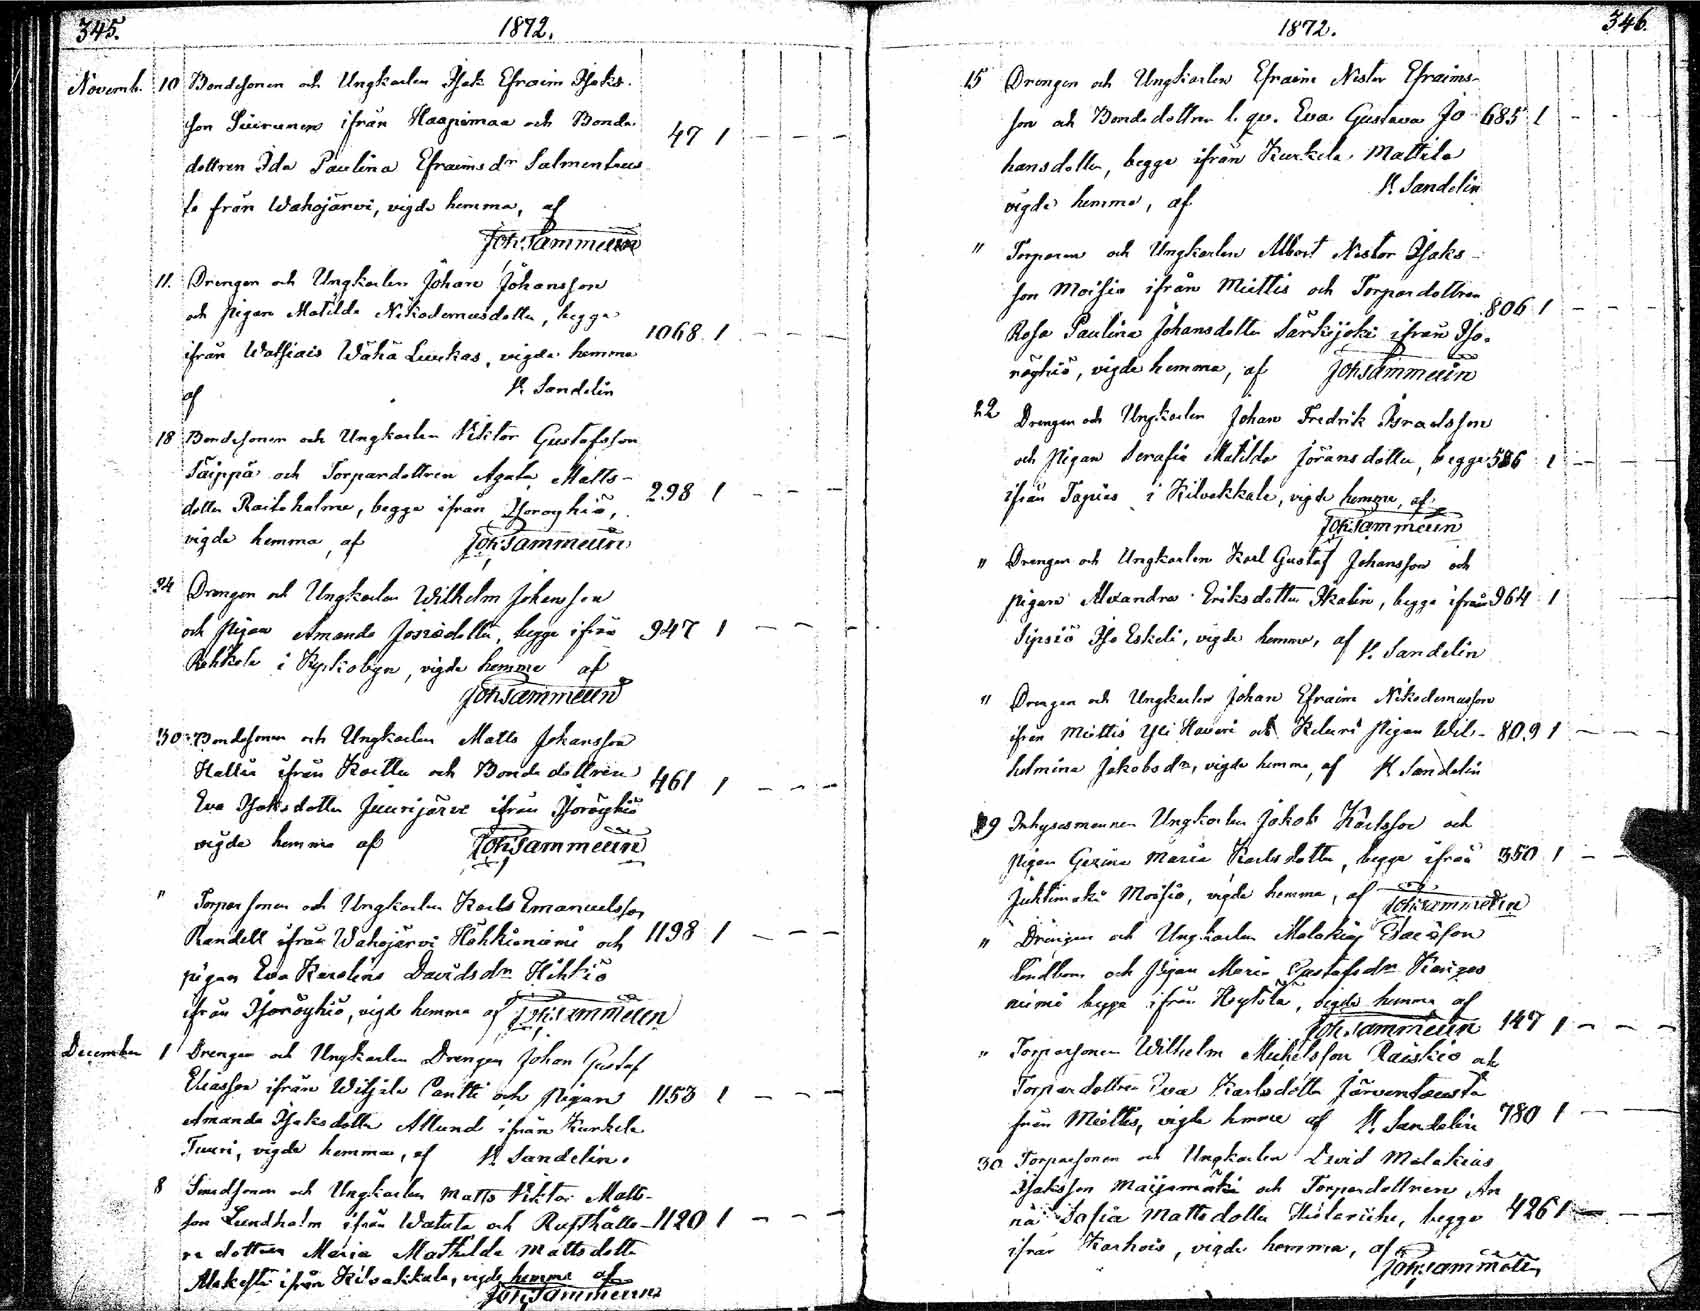 345.
1872.
Novemb. 10 Bondesonen och Ungkarlen Isak Efraim Isaks-
son Siurunen ifrån Haapimaa och Bonde
dottren Ida Paulina Efraims dr Salmentaus 47 1
ta från Wahojärvi, vigde hemma, af
Joh: Sammelin
11. Drengen och Ungkarlen Johan Johansson
och Pigan Matilda Nikodemusdotter, begge
ifrån Watsiais Wähä Luukas, vigde hemma 1068 1
af K. Sandelin
18 Bondesonen och Ungkarlen Viktor Gustafsson
Säippä och Torpardottren Agata Matts-
dotter Raitoholma, begge ifrån Isoröyhiö, 298 1
vigde hemma, af Joh: Sammelin
24 Drengen och Ungkarlen Wilhelm Johansson
och Pigan Amanda Josiædotter, begge ifrån 947 1
i Kyrkobyn, vigde hemma af
Joh: Sammelin
30 Bondesonen och Ungkarlen Matts Johansson
ifrån och Bonde dottren 461 1
Eva Isaksdotter Juurijärvi ifrån Isoröyhiö
vigde hemma af Joh: Sammelin
" Torparsonen och Ungkarlen Karl Emanuelsson
Randell ifrån Wahojärvi och 1198 1
pigan Eva Karolina Davidsdr
ifrån Isoröyhiö, vigde hemma af Joh: Sammelin
December 1 Drengen och Ungkarlen Drengen Johan Gustaf
Eliasson ifrån Pantti och Pigan 1153 1
Amanda Isaksdotter Allund ifrån Kurkela
Tuuri, vigde hemma, af K. Sandelin.
8 Smedsonen och Ungkarlen Matts Viktor Matts-
son Lundholm ifrån Watula och Rusthålla- 1120 1
re dottren Maria Mathilda Mattsdotter
ifrån Kilvakkala, vigde hemma af
Joh: Sammelin
346.
1872.
15 Drengen och Ungkarlen Efraim Nestor Efraims-
son och Bondedottren l. qv. Eva Gustava Jo- 685 1
hansdotter, begge ifrån Kurkela Mattila
vigde hemma, af K. Sandelin
" Torparen och Ungkarlen Albert Nestor Isaks-
son Moisio ifrån Miettis och Torpardottren 806 1
Rosa Paulina Johansdotter Särkijoki ifrån Iso-
röyhiö, vigde hemma, af Joh: Sammelin
22 Drengen och Ungkarlen Johan Fredrik Israelsson
och Pigan Serafia Matilda Göransdotter, begge 586 1
ifrån i Kilvakkala, vigde hemma, af
Joh: Sammelin
" Drengen och Ungkarlen Karl Gustaf Johansson och
Pigan Alexandra Eriksdotter Ikalin, begge ifrån 964 1
Sipsiö Iso Eskeli, vigde hemma, af K. Sandelin
" Drengen och Ungkarlen Johan Efraim Nikodemusson
ifrån Miettis Yli och Pigan Wil- 809 1
helmina Jakobsdr, vigde hemma, af K. Sandelin
29 Inhysesmannen Ungkarlen Jakob Karlsson och
Pigan Maria Karlsdotter, begge ifrån 350 1
Juhtimäki Moisio, vigde hemma, af Joh: Sammelin
" Drengen och Ungkarlen Malakias Esaiasson
Lindbom och Pigan Maria Gustafsdr
niemi begge ifrån Heytilä, vigde hemma af
Joh: Sammelin 147 1
" Torparsonen Wilhelm Michelsson Raiskio och
Torpardottren Eva Karlsdotter Järventausta
från Miettis, vigde hemma af K. Sandelin 780 1
30 Torparsonen och Ungkarlen David Malakias
Isaksson Maijamäki och Torpardottren An
na Sofia Mattsdotter, begge 426 1
ifrån Karhois, vigde hemma, af
Joh: Sammelin